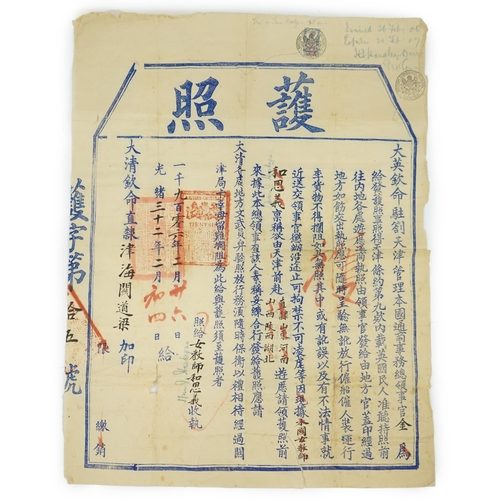 Issued 26 Feb. 06
護照
大英欽命駐劄天津管理本國通商事務總領事官金為
給發護照事照得天津條約第九欵內載英國民人准聽持照前
往內地各處遊歷通商執照由領事官發給由地方官蓋印經過
地方如飭交出執照應可隨時呈驗無訛放行僱船僱人裝運行
李貨物不得攔阻如其無照其中或有訛誤以及有不法情事就
近送交領事官懲辦沿途止可拘禁不可凌虐等因茲據本國女教師
和思義禀稱欲由天津前赴直隸山東河南山西陝西湖北遊歷請領護照前
來據此本總領事查該人素稱妥練合行發給護照應請
大清各處地方文武員弁驗照放行務須隨時保衛以禮相待經過關
津局卡毋得留難攔阻為此給與護照須至護照者
照給女教師和思義收執
一千九百零六年二月廿六日給
光緒三十二年二月初四日
大清欽命直隸津海關道梁加印
繳銷
護字第拾五號